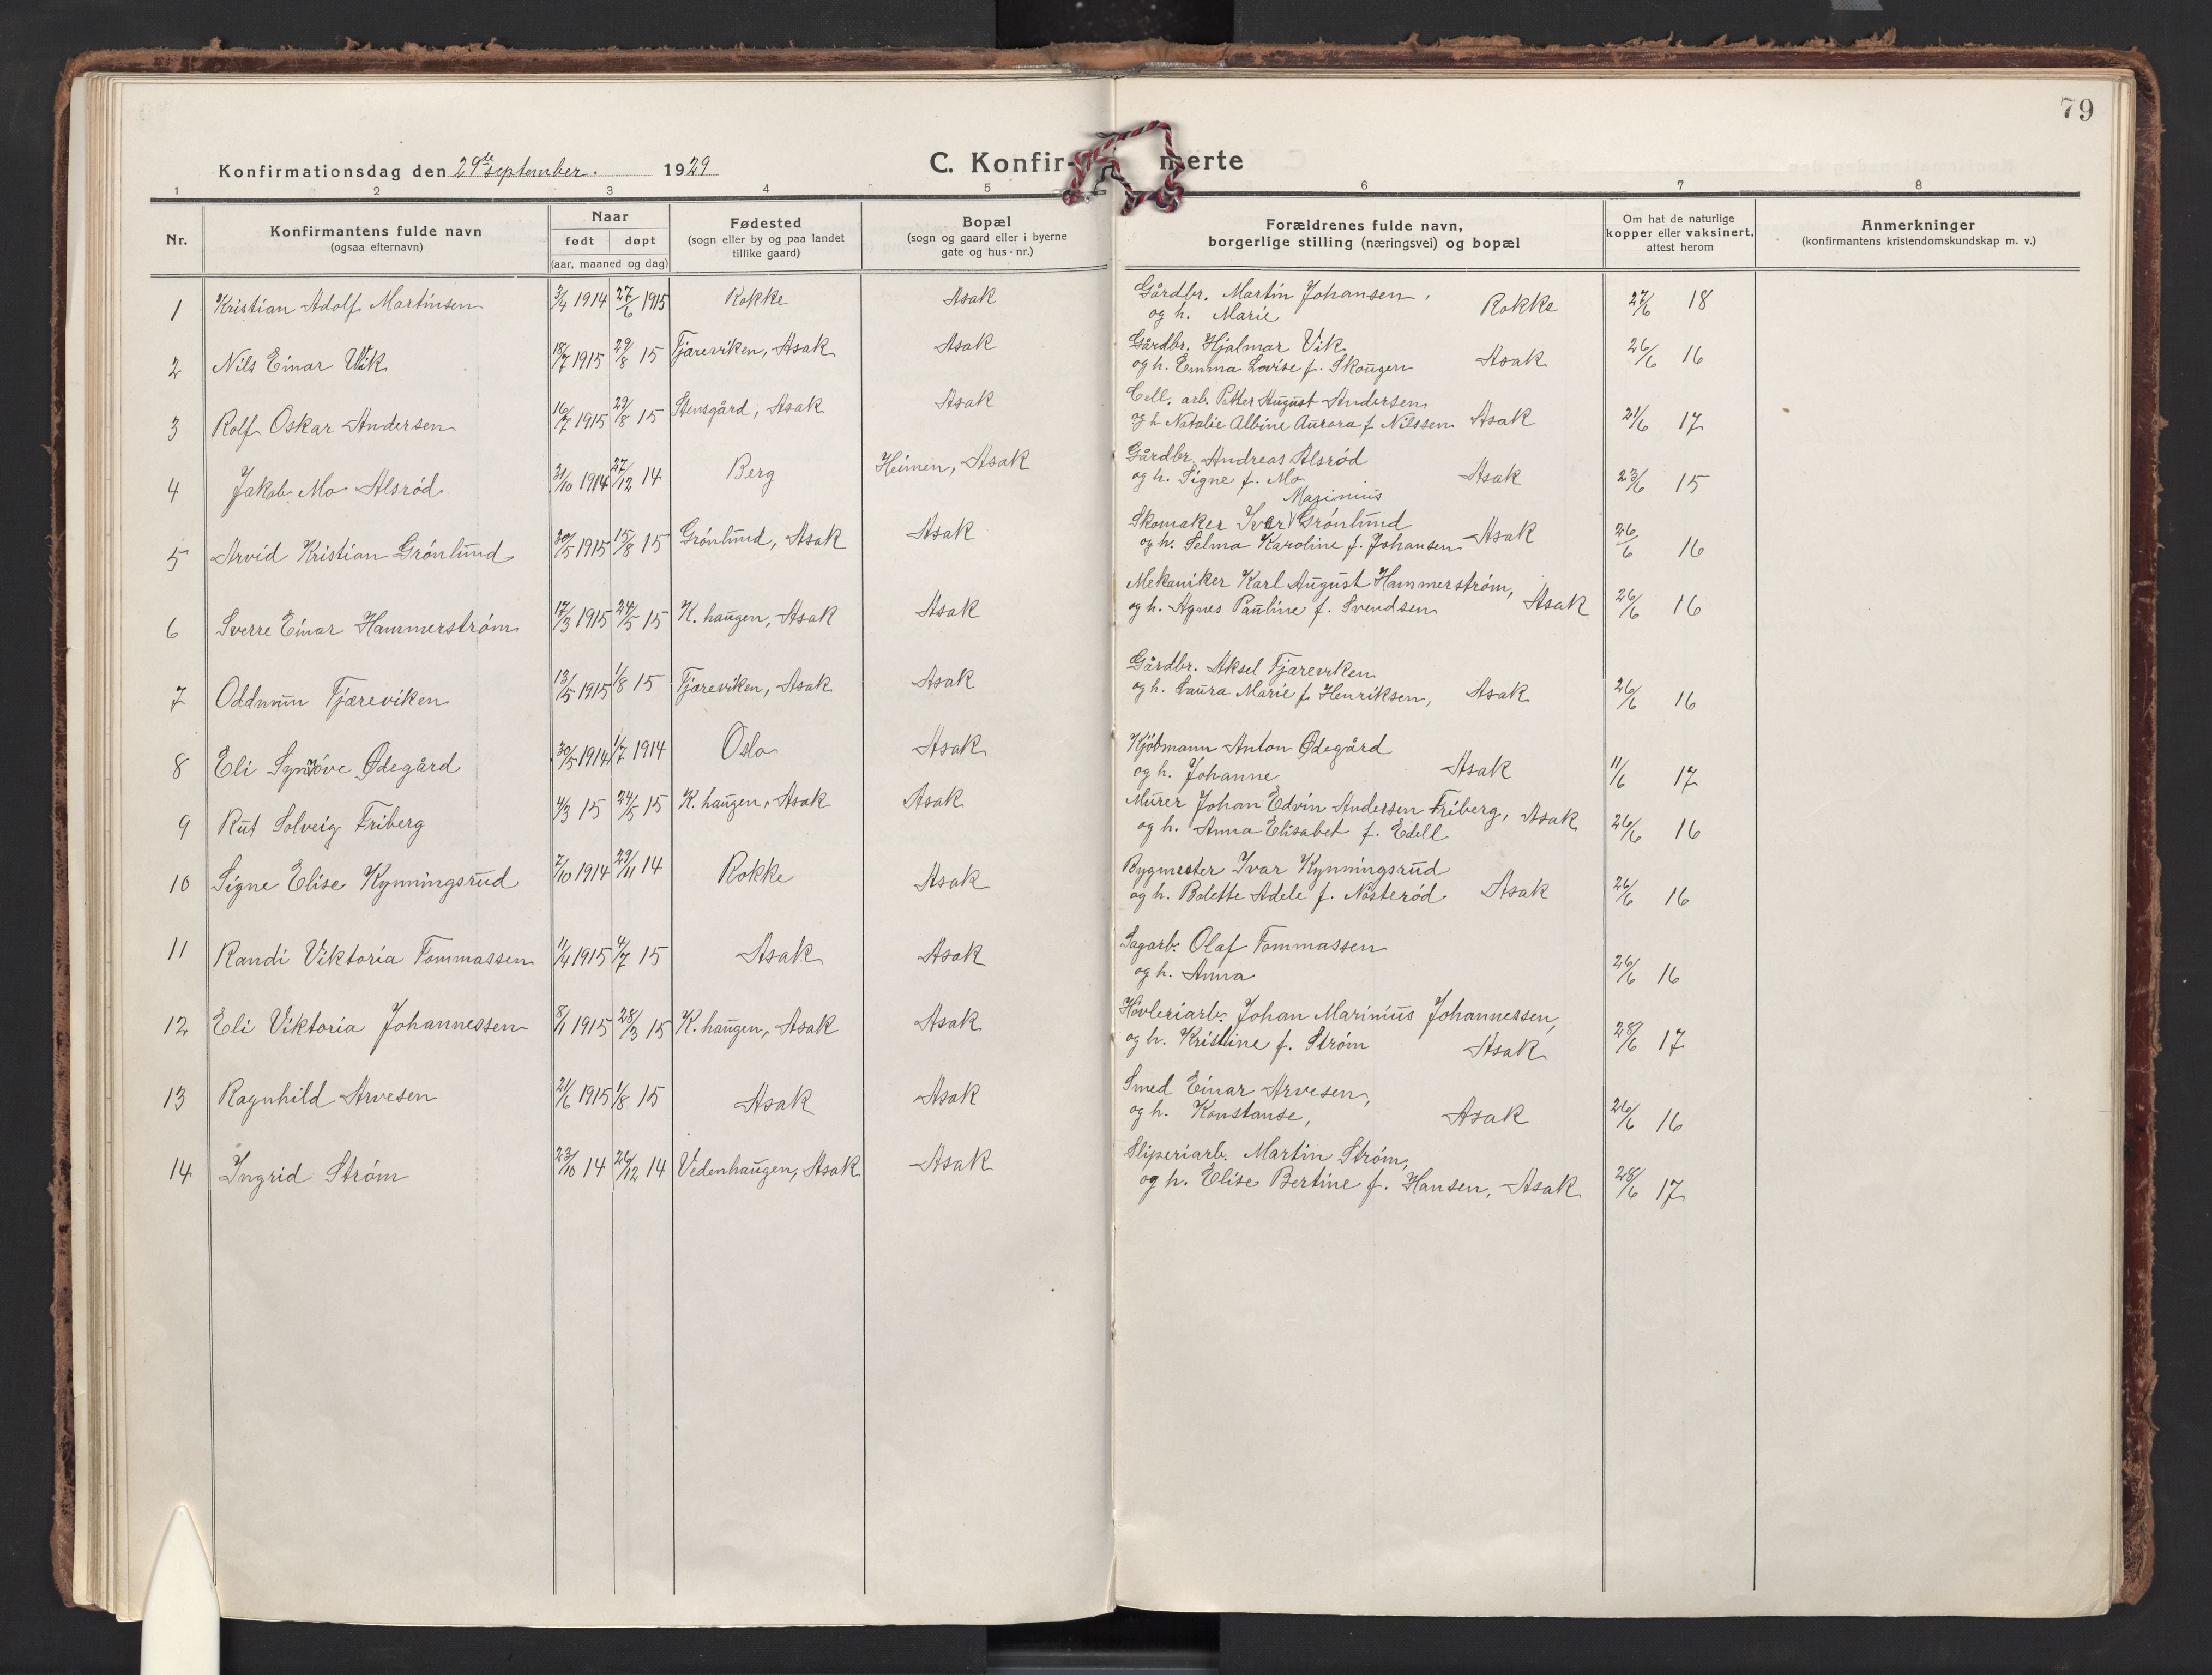 79
Konfirmationsdag den 29de september. 1929
C. Konfirmerte
1 2 3 4 5 6 7 8
Nr.
Konfirmantens fulde navn
(ogsaa efternavn)
Naar
født døpt
(aar, maaned og dag)
Fødested
(sogn eller by og paa landet
tillike gaard)
Bopæl
(sogn og gaard eller i byerne
gate og hus-nr.)
Forældrenes fulde navn,
borgerlige stilling (næringsvei) og bopæl
Om hat de naturlige
kopper eller vaksinert,
attest herom
Anmerkninger
(konfirmantens kristendomskundskap m. v.)
1 Kristian Adolf Martinsen 3/4 1914 27/6 1915 Rokke Asak Gårdbr. Martin Johansen,
og h. Marie Rokke 27/6 18
2 Nils Einar Vik 18/7 1915 29/8 15 Tjæreviken, Asak Asak Gårdbr. Hjalmar Vik
og h. Emma Lovise f. Skougen Asak 26/6 16
3 Rolf Oskar Andersen 16/7 1915 29/8 15 Stensgård, Asak Asak Cell. arb. Petter August Andersen
og h Natalie Albine Aurora f Nilssen Asak 21/6 17
4 Jakob Mo Alsrød 31/10 1914 27/12 14 Berg Heimen, Asak Gårdbr. Andreas Alsrød
og h. Signe f. Mo Asak 23/6 15
Maximius
5 Arvid Kristian Grönlund 30/5 1915 15/8 15 Grönlund, Asak Asak Skomaker Ivar Grönlund
og h. Selma Karoline f. Johansen Asak 26/6 16
6 Sverre Einar Hammerström 17/3 1915 24/5 15 K. haugen, Asak Asak Mekaniker Karl August Hammerström,
og h. Agnes Pauline f. Svendsen Asak 26/6 16
7 Oddmun Tjæreviken 13/5 1915 1/8 15 Tjæreviken, Asak Asak Gårdbr. Aksel Tjæreviken
og h. Laura Marie f Henriksen, Asak 26/6 16
8 Eli Synnöve Ødegård 30/5 1914 1/7 1914 Oslo Asak Kjöbmann Anton Ødegård
og h. Johanne Asak 11/6 17
9 Rut Solveig Friberg 4/3 15 24/5 15 K. haugen, Asak Asak Murer Johan Edvin Andersen Friberg, Asak
og h. Anna Elisabet f. Edell 26/6 16
10 Signe Elise Kynningsrud 7/10 1914 29/11 14 Rokke Asak Bygmester Ivar Kynningsrud
og h. Bolette Adele f. Nösteröd Asak 26/6 16
11 Randi Viktoria Tommassen 11/4 1915 4/7 15 Asak Asak Sagarb. Olaf Tommassen
og h. Anna 26/6 16
12 Eli Viktoria Johannessen 8/1 1915 28/3 15 K. haugen, Asak Asak Hövleriarb. Johan Marinius Johannessen,
og h. Kristine f. Ström Asak 28/6 17
13 Ragnhild Arvesen 21/6 1915 1/8 15 Asak Asak Smed Einar Arvesen,
og h. Konstanse, Asak 26/6 16
14 Ingrid Ström 23/10 14 26/12 14 Vedenhaugen, Asak Asak Sliperiarb. Martin Ström,
og h. Elise Bertine f. Hansen, Asak 28/6 17